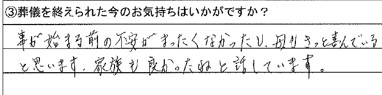 ③葬儀を終えられた今のお気持ちはいかがですか？
事が始まる前の不安がまったくなかったし、母もきっと喜んでいる
と思います。家族も良かったねと話しています。